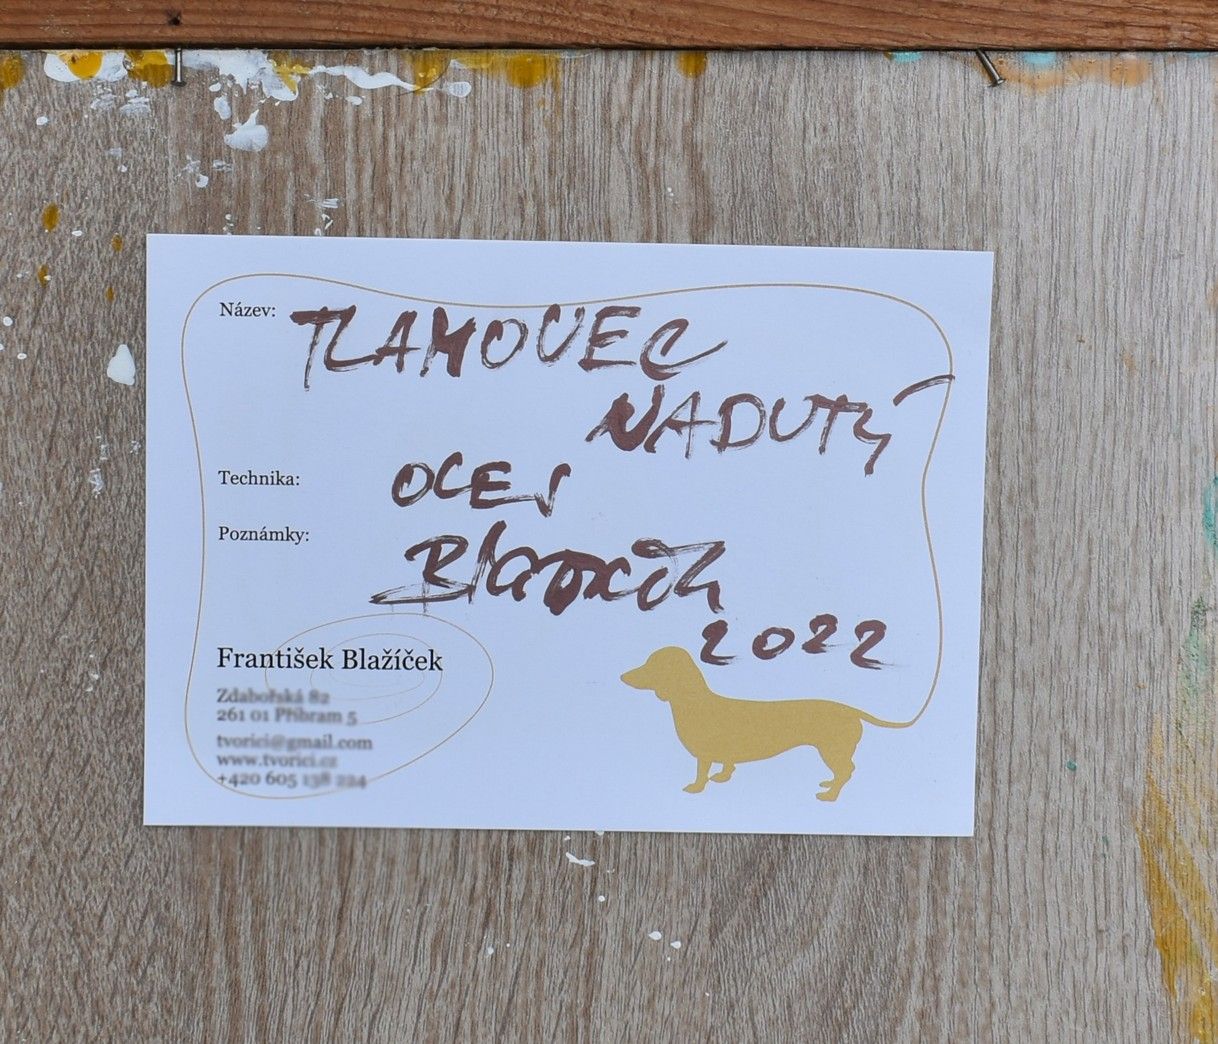 Název: TLAMOVEC
NADUTÝ
Technika: OLEJ
Poznámky:
2022
František Blažíček
Zdabořská 82
261 01 Příbram 5
tvorici@gmail.com
www.tvorici.cz
+420 605